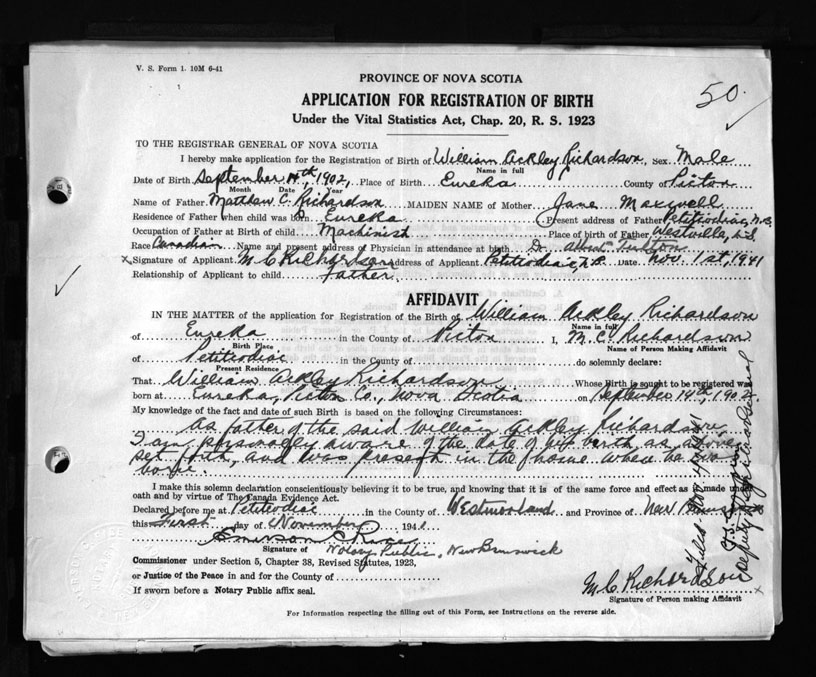 V. S. Form 1. 10M 6-41
50.
PROVINCE OF NOVA SCOTIA
APPLICATION FOR REGISTRATION OF BIRTH
Under the Vital Statistics Act, Chap. 20, R. S. 1923
TO THE REGISTRAR GENERAL OF NOVA SCOTIA
I hereby make application for the Registration of Birth of William Ackley Richardson, Sex Male
Name in full
Date of Birth September 14th, 1902, Place of Birth Eureka County of Pictou
Month Date Year
Name of Father Matthew C. Richardson MAIDEN NAME of Mother Jane
Residence of Father when child was born Eureka Present address of Father Petitcodiac, N.B.
Occupation of Father at Birth of child Machinist Place of birth of Father Westville, N.S.
Race Canadian Name and present address of Physician in attendance at birth Dr. Albert
x Signature of Applicant M C Richardson Address of Applicant Petitcodiac, N.B. Date Nov. 1st, 1941
Relationship of Applicant to child father.
AFFIDAVIT
IN THE MATTER of the application for Registration of the Birth of William Ackley Richardson
Name in full
of Eureka in the County of Pictou I, M. C. Richardson
Birth Place Name of Person Making Affidavit
of Petitcodiac in the County of do solemnly declare:
Present Residence
That William Ackley Richardson Whose Birth is sought to be registered was
born at Eureka, Pictou Co., Nova Scotia on September 14th 1902.
My knowledge of the fact and date of such Birth is based on the following Circumstances:
As father of the said William Ackley Richardson
I am personally aware of the date of his birth as above
set forth, and was present in the home when he was
borne.
I make this solemn declaration conscientiously believing it to be true, and knowing that it is of the same force and effect as if made under
oath and by virtue of The Canada Evidence Act.
Declared before me at Petitcodiac in the County of Westmorland and Province of New Brunswick
this First day of November 1941
Emerson C Rice
Signature of Notary Public, New Brunswick
Commissioner under Section 5, Chapter 38, Revised Statutes, 1923,
or Justice of the Peace in and for the County of
If sworn before a Notary Public affix seal.
M. C. Richardson x
Signature of Person making Affidavit
For Information respecting the filling out of this Form, see Instructions on the reverse side.
Filed Nov 4 1941
Deputy Registrar General